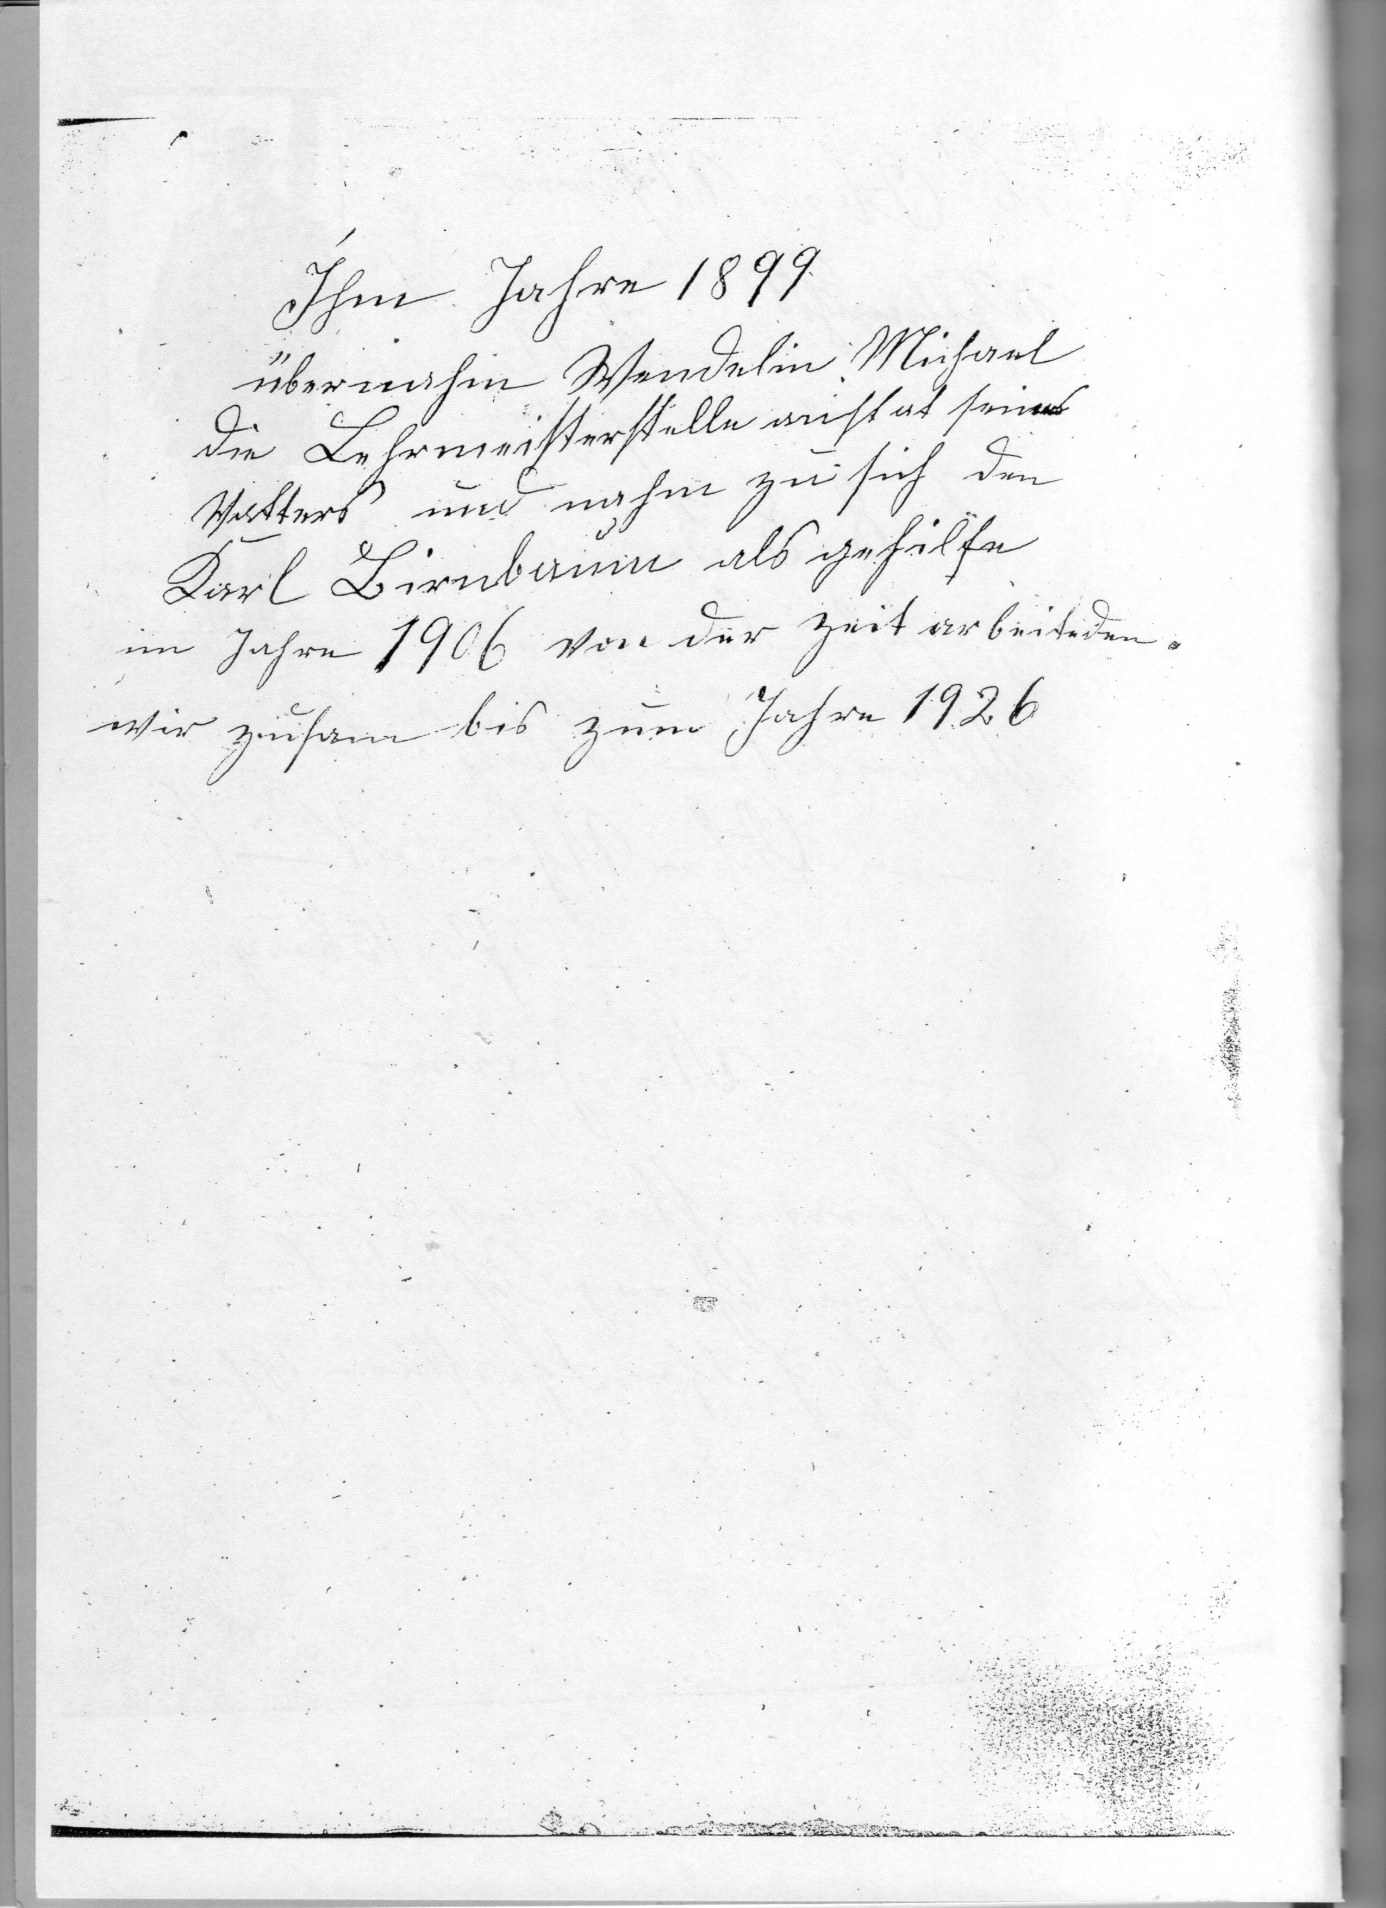 Ihm Jahre 1899
übernahm Wendelin Michael
die Lehrmeisterstelle anstat seines
Vatters und nahm zu sich den
Karl Birnbaum als gehilfe
im Jahre 1906 von der zeit arbeiteden
wir zusam bis zum Jahre 1926